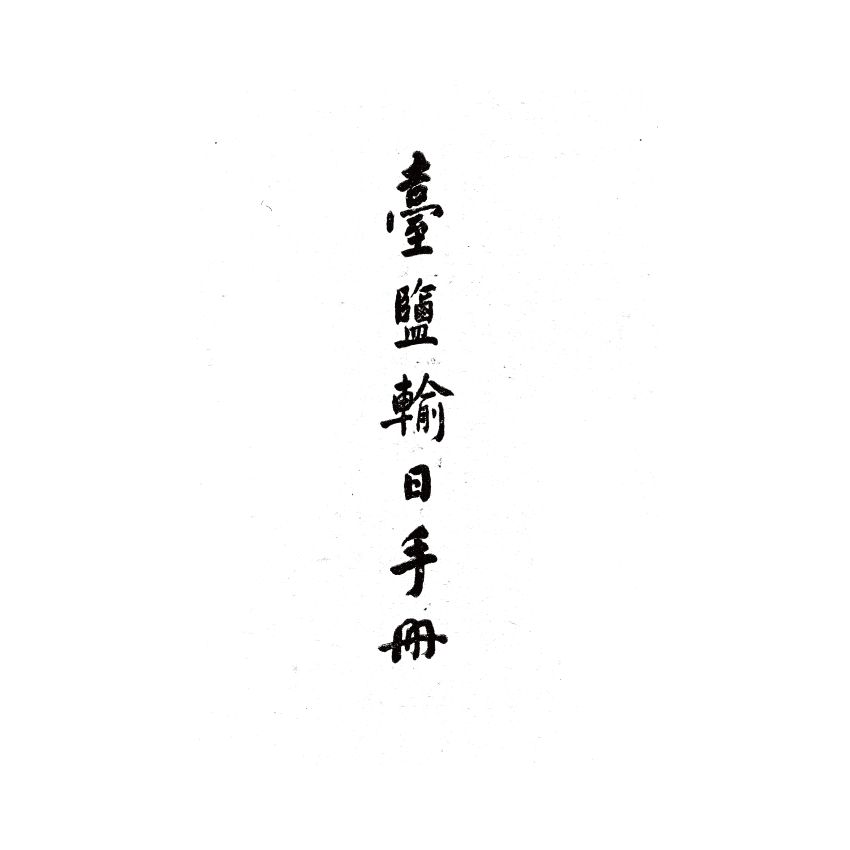 臺鹽輸日手册